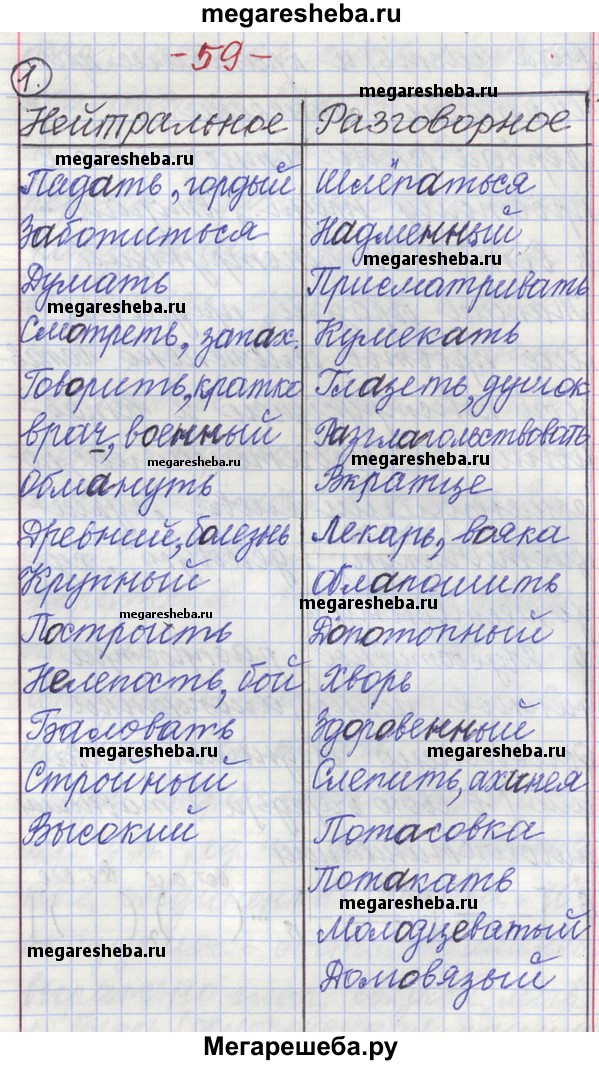 megaresheba.ru
- 59 -
1.
Нейтральное Разговорное
megaresheba.ru
megaresheba.ru
Падать, гордый Шлёпаться
Заботиться Надменный
megaresheba.ru
Думать Присматривать
megaresheba.ru
Смотреть, запах. Кумекать
Говорить, кратко Глазеть, душок
врач, военный Разглагольствовать
megaresheba.ru
megaresheba.ru
Обмануть Вкратце
Древний, болезнь Лекарь, вояка
Крупный Облапошить
megaresheba.ru
megaresheba.ru
Построить Допотопный
Нелепость, бой Хворь
Баловать Здоровенный
megaresheba.ru
megaresheba.ru
Стройный Слепить, ахинея
Высокий Потасовка
Потакать
megaresheba.ru
Молодцеватый
megaresheba.ru
Долговязый
Мегарешеба.ру